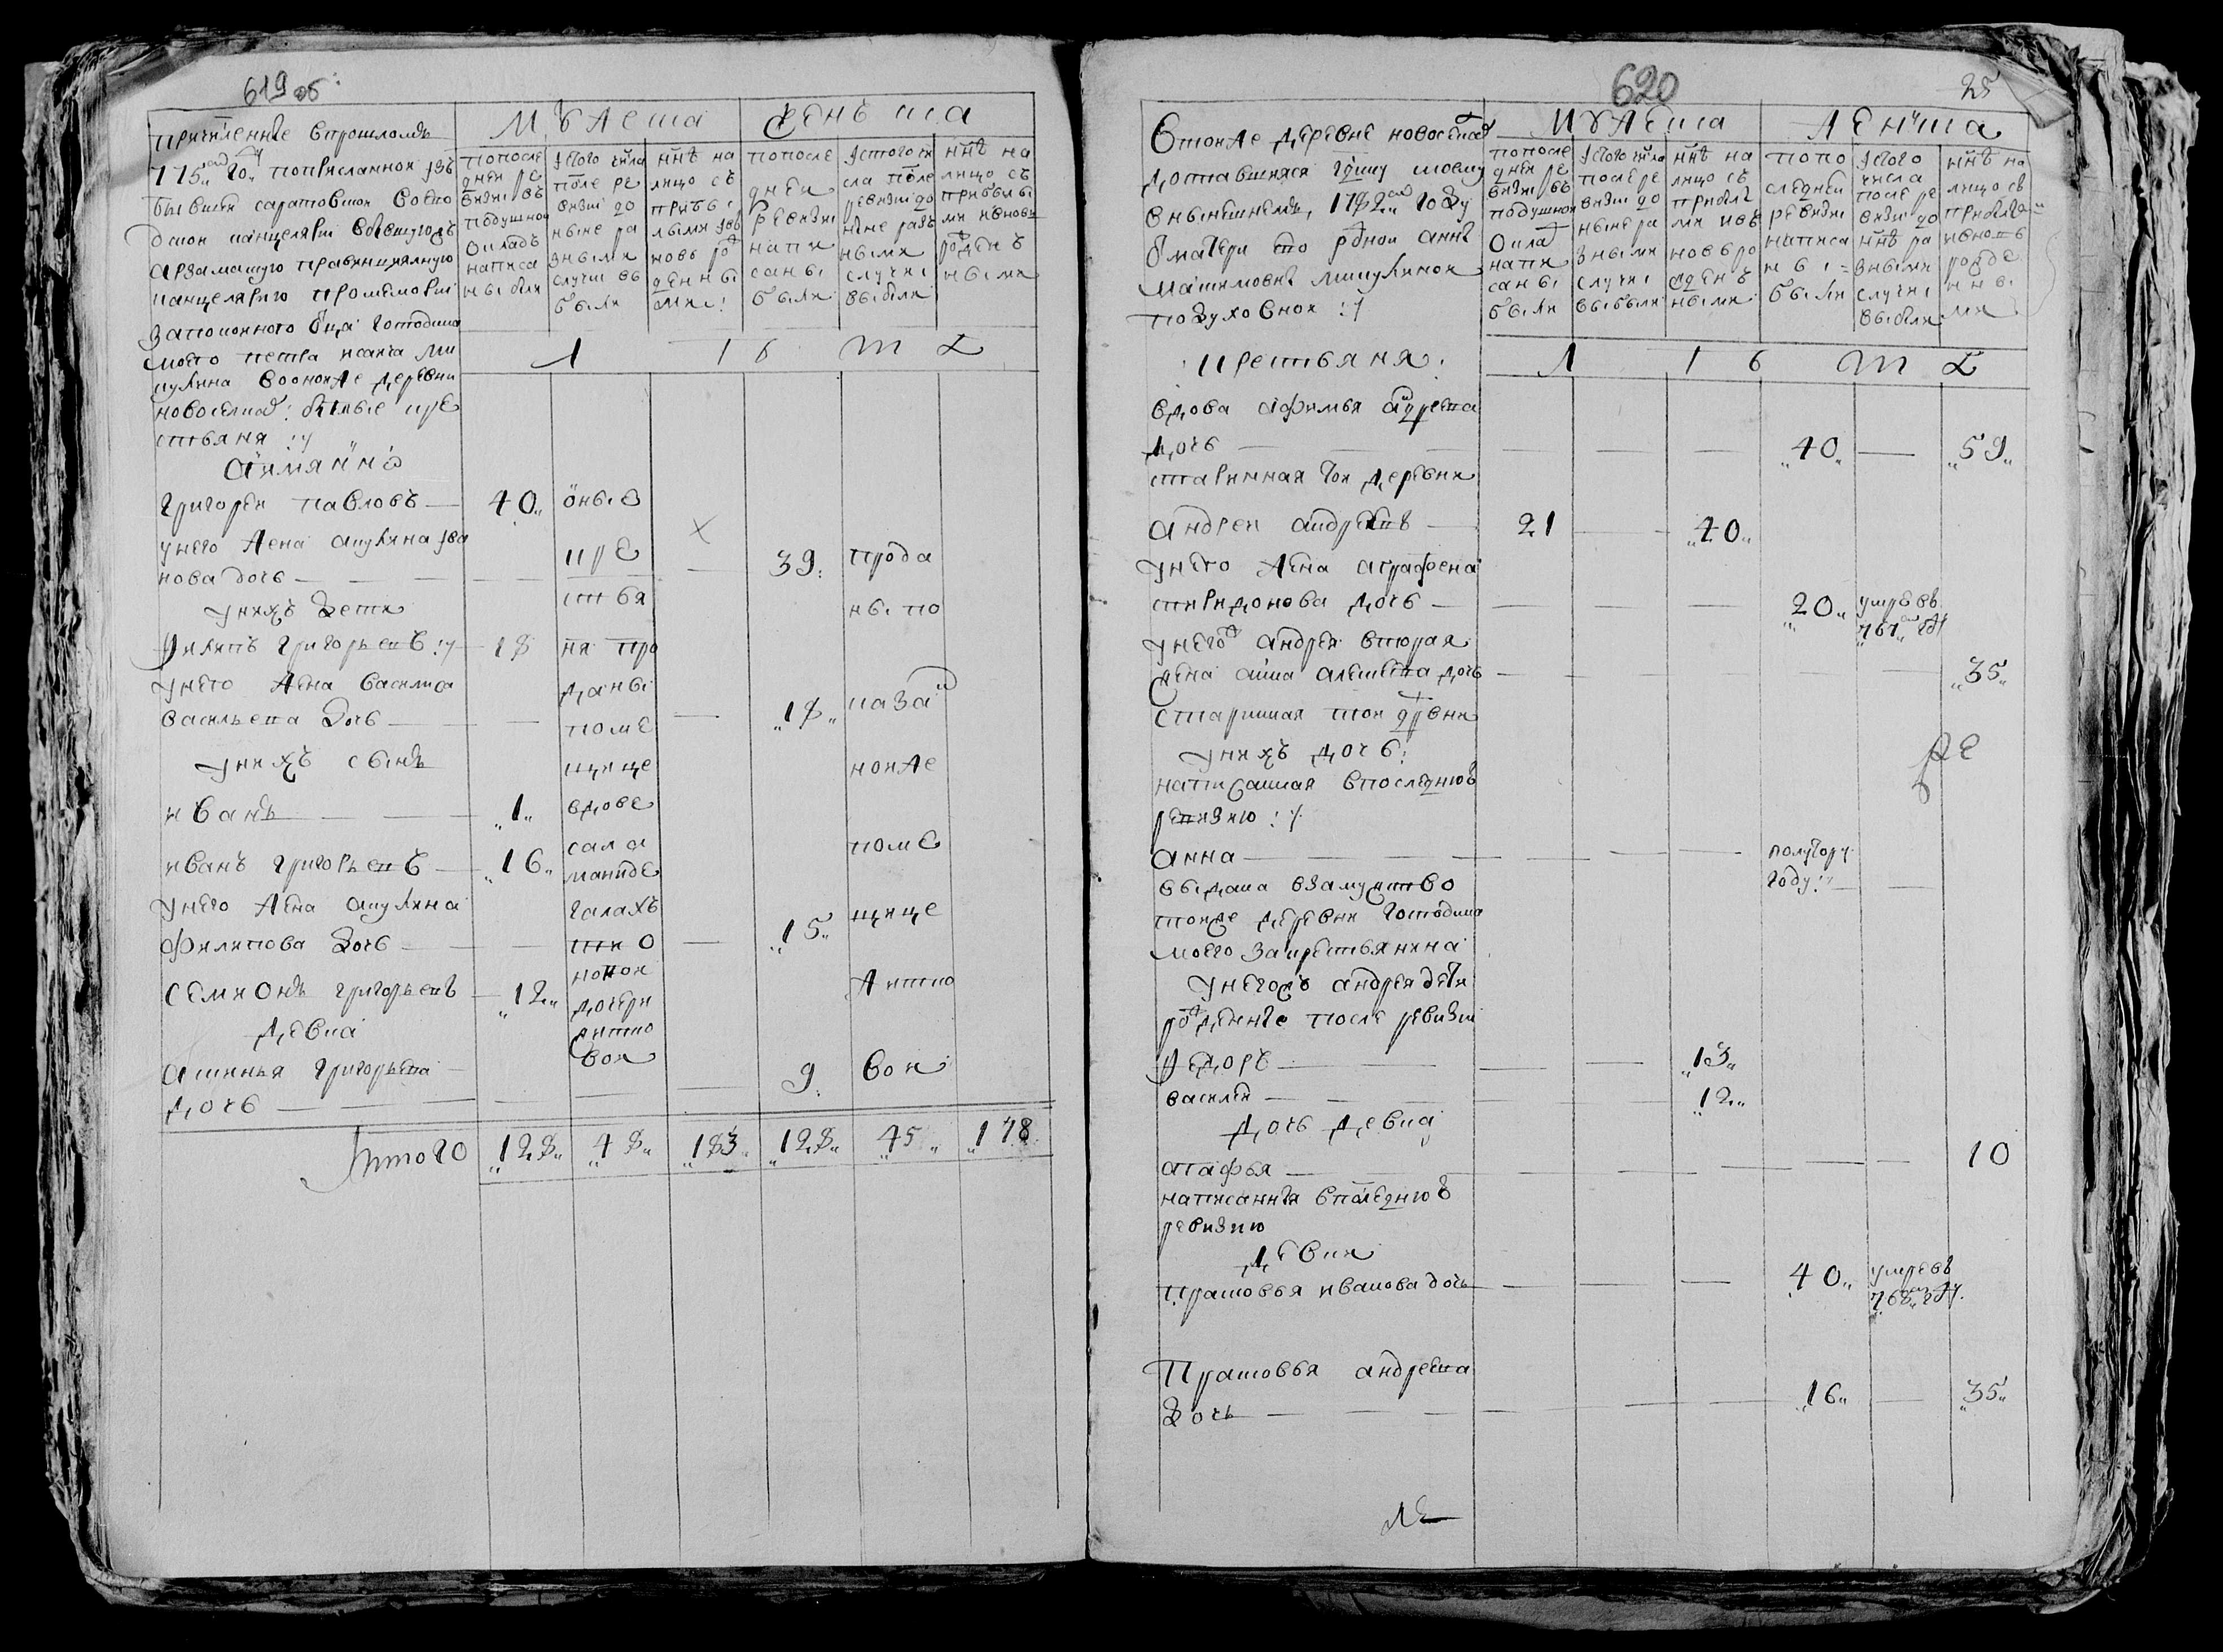 619 об
причисленные впрошломъ
775 году поприсланной изъ
бывшей саратовской воево
дской канцелярии
арзамаскую правинциялную
канцелярию промемории
запокоиного отца господина
моего петра исаича ми
кулина воонойже деревни
новоселкахъ кре
стьяня
а имянно
мужеска
женска
попосле
дней ре
визии въ
подушной
окладъ
написа
ны были
исего числа
после ре
визии до
ныне ра
зными
случаи вы
были
ннѣ на
лицо съ
прибы
лыми
новь ро
жденны
ми
попосле
дней
ревизии
напи
саны
были
исъ того чи
сла после
ревизии до
ныне раз
ными
случаи
выбыли
ннѣ на
лицо съ
прибылы
ми ивновь
рожден
ными
л ѣ т а
григорей павловъ 40 оные
унего жена акулина ива
нова дочь 39 прода
кре
стья
унихъ дети ны по
филипъ григорьевъ 18 ня про
унего жена василиса
васильева дочь 18 казан
даны
поме
унихъ сынъ щице нойже
иванъ 1 вдове
иванъ григорьевъ 16 сала
маниде поме
унего жена акулина галахъ
филипова дочь тио 15 щице
семионъ григорьевъ 12 дочери
девка житко
аксинья григорьева вой 9 вой
дочь
итого 128 48 183 128 45 178
620
25
втойже деревне новоселкахъ
доставшияся
внынешнемъ 1782 году
отматери его родной анны
максимовны микулиной
подуховной
мужеска
женска
попосле
дней ре
визии въ
подушной
оклад
напи
саны
были
исего числа
после ре
визии до
ныне ра
зными
случаи
выбыли
ннѣ на
лицо съ
прибылы
ми ивъ
новь ро
жден
ными
попо
следней
ревизии
написа
ны
были
исего
числа
после ре
визии до
ннѣ ра
зными
случаи
выбыли
ннѣ на
лицо съ
прибылы
ивновь
рожде
нны
ми
л ѣ т а
крестьяня
вдова афимья андреева
дочь 40 59
старинная той деревни
андрей андреевъ 21 40
унего жена аграфена
спиридонова дочь 20 умре въ
767 году
унего андрея вторая
жена анна алексеева дочь 35
старинная той древни
унихъ дочь
написанная впоследнюю
ревизию
анна полутору
году
выдана взамужство
тойже деревни господина
моего закрестьянина
унегожъ андрея дети
рожденные после ревизии
федоръ 13
василей 12
дочь девка
агафья 10
написанныя впоследнюю
ревизию
девки
прасковья иванова дочь 40 умре въ
768 году
прасковья андреева
дочь 16 35